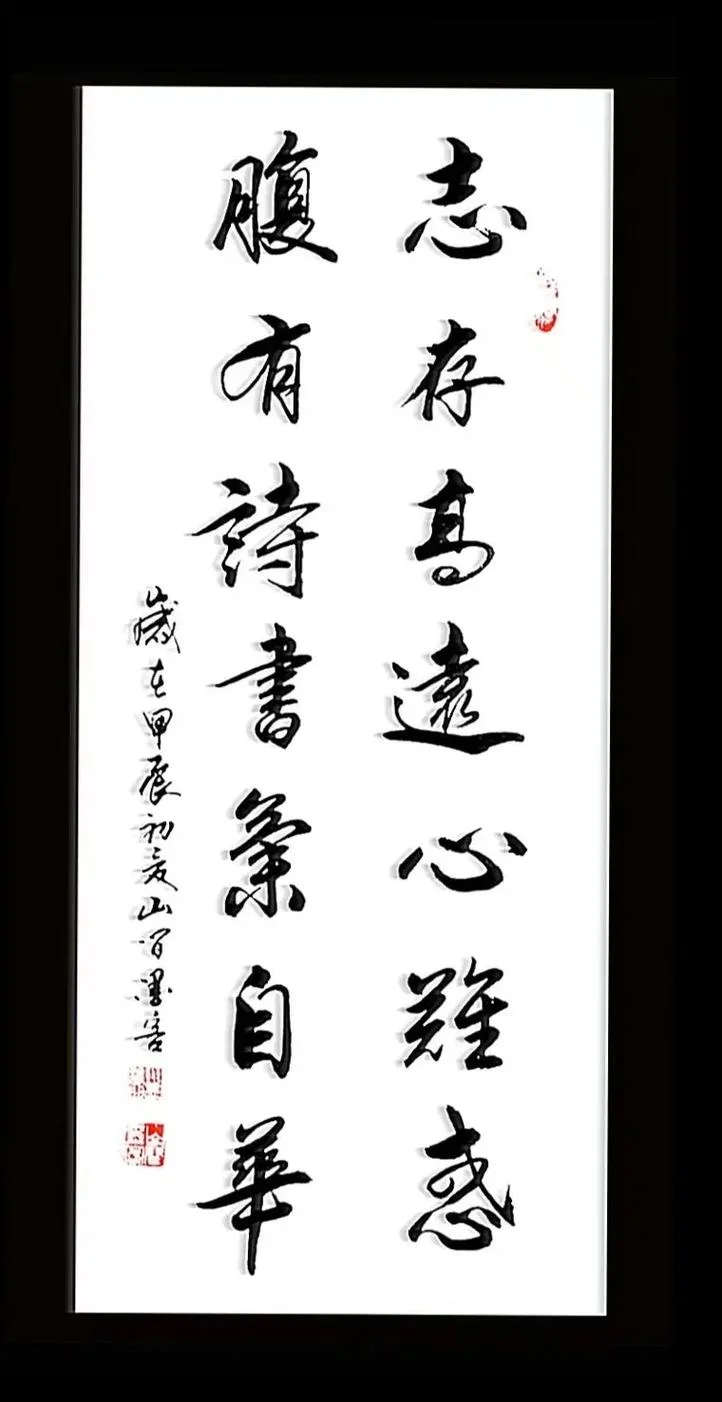 志存高遠心難惑
腹有詩書氣自華
歲在甲辰初夏山